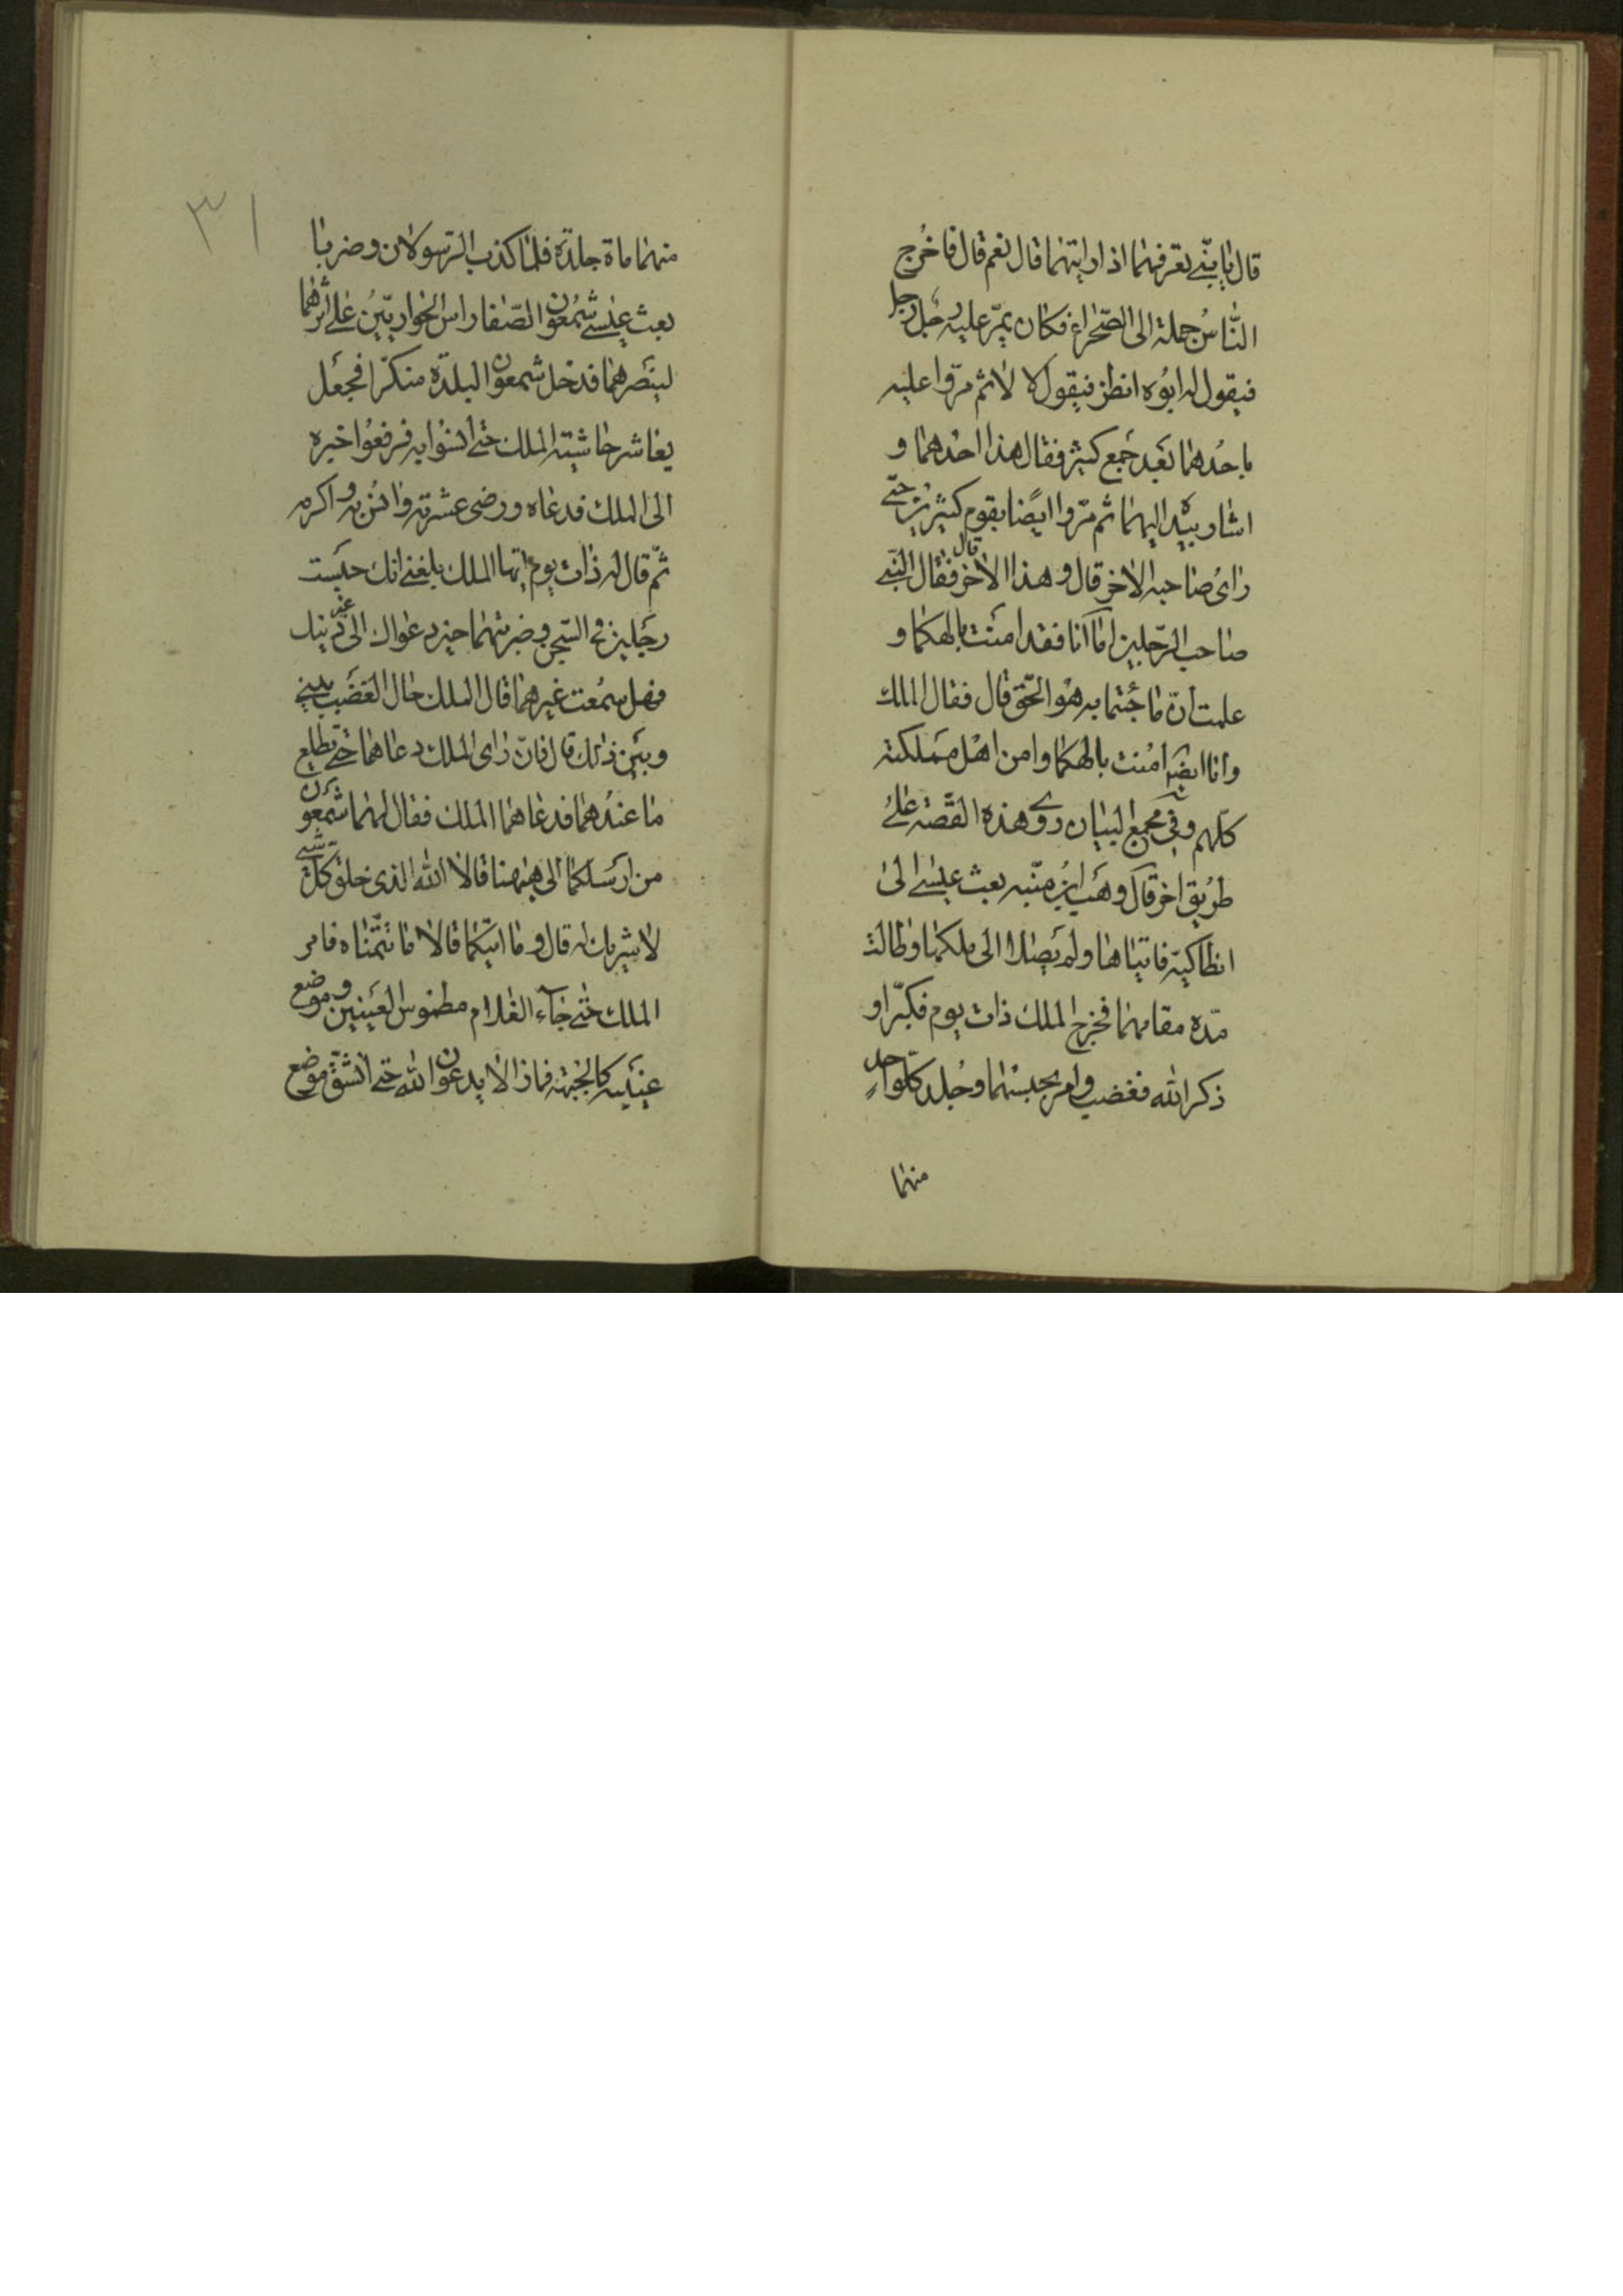 قال يا بنّي تعرفهما اذا رايتهما قال نعم قال فاخرج
النّاس جملة الى الصّحراء فكان يمرّ عليه رجل رجل
فيقول له ابوه انظر فيقول لا لا ثم مرّوا عليه
باحدهما بعد جمع كثير فقال هذا احدهما و
اشار بيده اليهما ثم مرّوا ايضا بقوم كثيرين حتّى
راى صاحبه الاخر قال و هذا الاخر قال فقال النبّي
صاحب الرّجلين امّا انا فقد امنت بالهكما و
علمت انّ ما جئتما به هو الحّق قال فقال الملك
وانا ايضا امنت بالهكما وامن اهل مملكته
كلّهم وفي مجمع البيان روى هذه القصّة على
طريق اخر قال وهب ابن منّبه بعث عيسى الى
انطاكيّة فاتياها ولم يصلا الى ملكها وطالت
مدّه مقامهما فخرج الملك ذات يوم فكبّرا و
ذكرا الله فغضب وامر بحبسهما وجلد كلّ واحدٍ
منهما
٣١
منهما ماة جلدة فلمّا كذب الرّسولان وضربا
بعث عيسى شمعون الصّفا راس الحواريّين على اثرهما
لينصرهما فدخل شمعون البلدة منكّرا فجعل
يعاشر حاشيته الملك حتّى انسوا به فرفعوا خبره
الى الملك فدعاه ورضى عشرته وانس به واكرمه
ثمّ قال له ذات يوم ايّها الملك بلغني انك حبست
رجلين في السّجن وضربتهما حين دعواك الى غير دينك
فهل سمعت غيرهما قال الملك حال الغضب بيني
وبين ذلك قال فانّ راى الملك دعاهما حتّى نطّلع
ما عندهما فدعاهما الملك فقال لهما شمعون
من ارسلكما الى هيهنا قالا الله الذى خلق كلّ شئ
لا شريك له قال وما ايتكما قالا ما تتمّناه فامر
الملك حتّى جاء الغلام مطموس العينين وموضع
عينيه كالجبهة فما زالا يدعوان الله حتّى انشقّ موضع